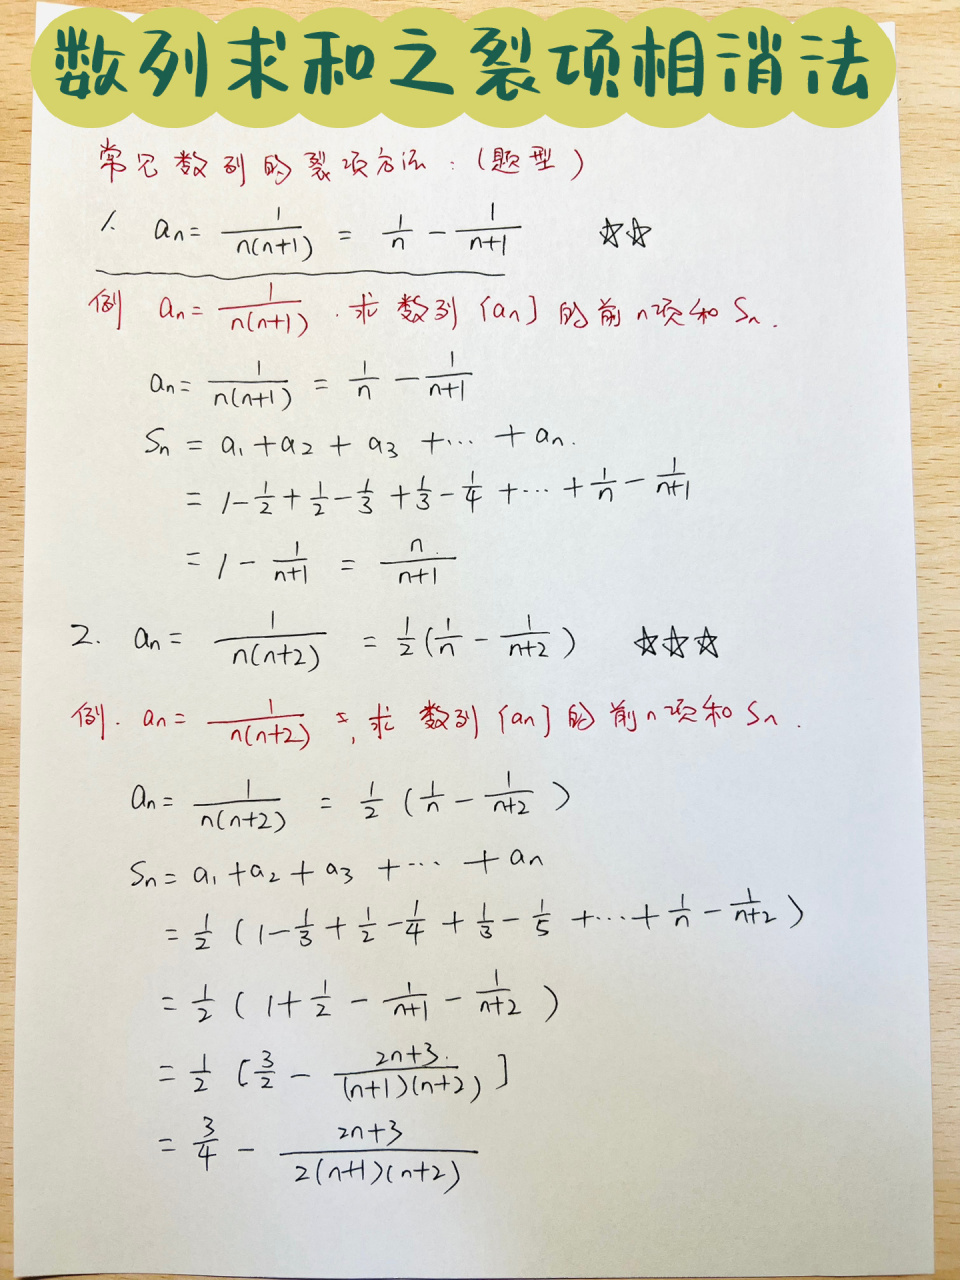 数列求和之裂项相消法
常见数列的裂项方法:(题型)
1. aₙ = 1/(n(n+1)) = 1/n - 1/(n+1) ☆☆
例 aₙ = 1/(n(n+1)). 求数列{aₙ}的前n项和Sₙ.
aₙ = 1/(n(n+1)) = 1/n - 1/(n+1)
Sₙ = a₁+a₂+a₃+…+aₙ.
= 1-1/2+1/2-1/3+1/3-1/4+…+1/n-1/(n+1)
= 1-1/(n+1) = n/(n+1)
2. aₙ = 1/(n(n+2)) = 1/2(1/n - 1/(n+2)) ☆☆☆
例. aₙ = 1/(n(n+2)) =, 求数列{aₙ}的前n项和Sₙ.
aₙ = 1/(n(n+2)) = 1/2(1/n - 1/(n+2))
Sₙ = a₁+a₂+a₃+…+aₙ
= 1/2(1-1/3+1/2-1/4+1/3-1/5+…+1/n-1/(n+2))
= 1/2(1+1/2-1/(n+1)-1/(n+2))
= 1/2[3/2-(2n+3)/((n+1)(n+2))]
= 3/4-(2n+3)/(2(n+1)(n+2))